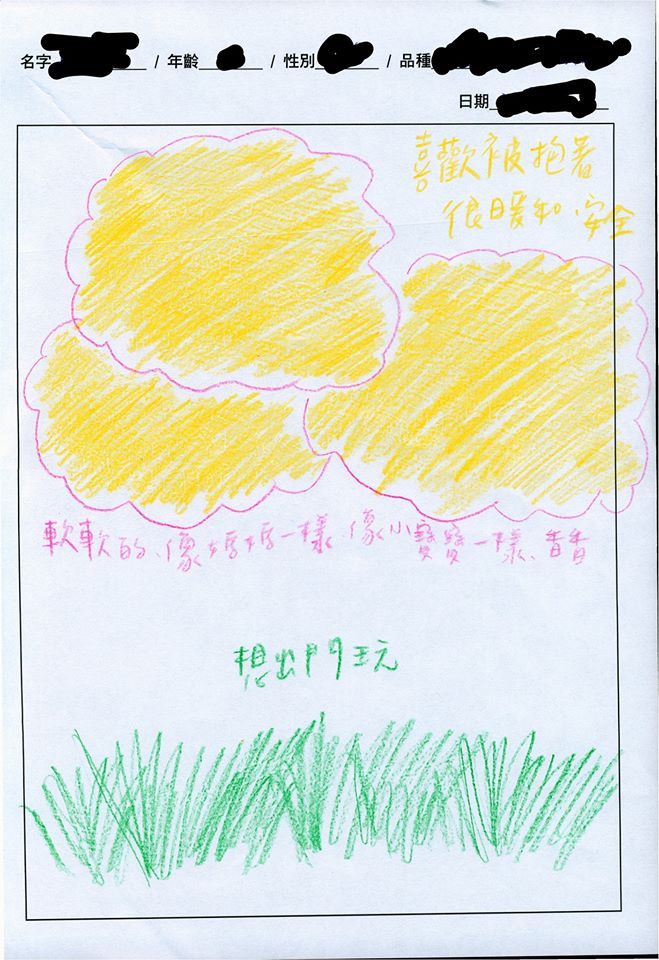 名字 / 年齡 / 性別 / 品種
日期
喜歡被抱著
很暖和、安全
軟軟的、像媽媽一樣、像小寶寶一樣、香香
想出門玩